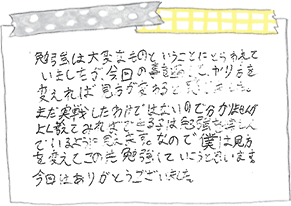 勉強は大変なものということにとらわれて
いましたが、今回の
変えれば見方が変わると
まだ実戦したわけではないので分かりませんが
よく教えてみればできる子は勉強を楽しんで
いるように見えます。なので僕は見方
を変えてこの先勉強していこうと思います
今回はありがとうございました。